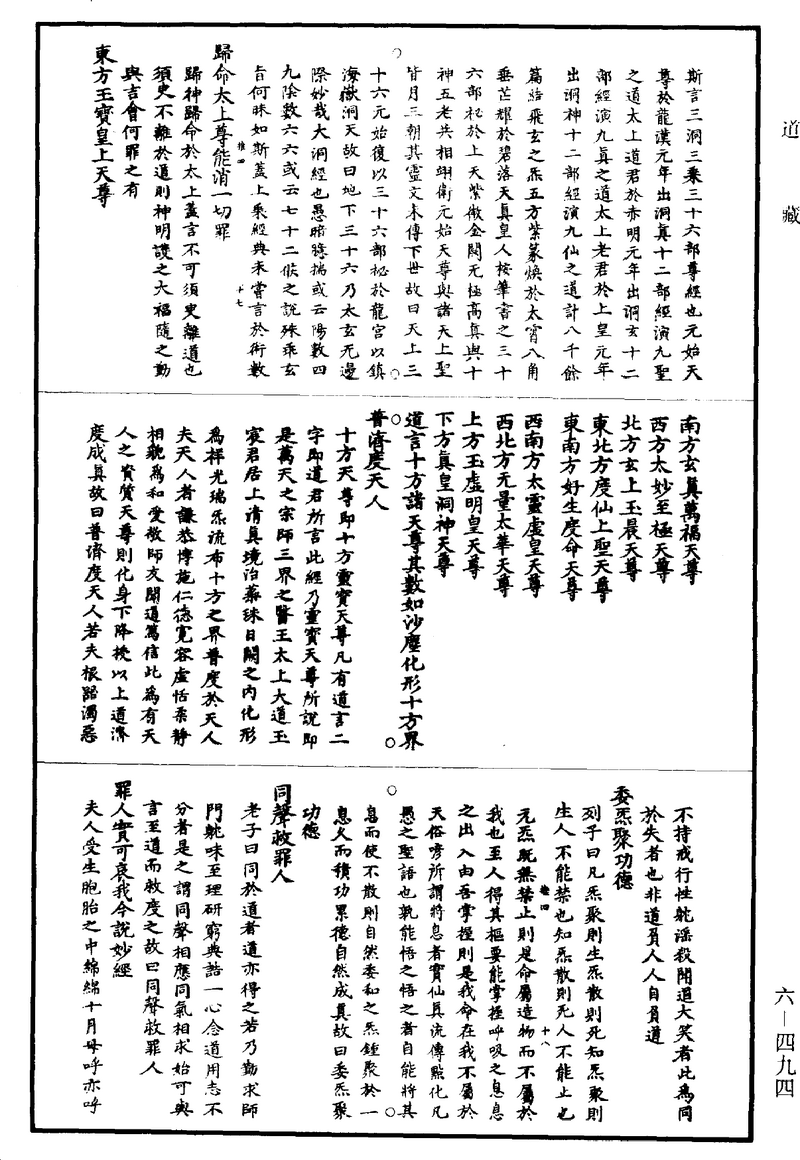 道藏
斯言三洞三乘三十六部尊經也元始天
尊於龍漢元年出洞真十二部經演九聖
之道太上道君於赤明元年出洞玄十二
部經演九真之道太上老君於上皇元年
出洞神十二部經演九仙之道計八千餘
篇結飛玄之炁五方紫篆煥於太霄八角
垂芒耀於碧落天真皇人按筆書之三十
六部祕於上天紫微金闕无極高真與十
神五老共相翊衛元始天尊與諸天上聖
皆月三朝其靈文未傳下世故曰天上三
十六元始復以三十六部祕於龍宮以鎮
海嶽洞天故曰地下三十六乃太玄无邊
際妙哉大洞經也愚暗臆揣或云陽數四
九陰數六六或云七十二候之說殊乖玄
旨何昧如斯蓋上乘經典未嘗言於術數
歸命太上尊能消一切罪
歸神歸命於太上蓋言不可須臾離道也
須臾不離於道則神明護之大福隨之動
與吉會何罪之有
東方玉寶皇上天尊
南方玄真萬福天尊
西方太妙至極天尊
北方玄上玉晨天尊
東北方度仙上聖天尊
東南方好生度命天尊
西南方太靈虛皇天尊
西北方无量太華天尊
上方玉虛明皇天尊
下方真皇洞神天尊
道言十方諸天尊其數如沙塵化形十方界
普濟度天人
十方天尊即十方靈寶天尊凡有道言二
字即道君所言此經乃靈寶天尊所說即
是萬天之宗師三界之醫王太上大道玉
宸君居上清真境治蘂珠日闕之內化形
為祥光瑞炁流布十方之界普度於天人
夫天人者謙恭博施仁德寬容虛恬柔靜
相親為和愛敬師友聞道篤信此為有天
人之資質天尊則化身下降授以上道濟
度成真故曰普濟度天人若夫根器濁惡
不持戒行性躭淫殺聞道大笑者此為同
於失者也非道負人人自負道
委炁聚功德
列子曰凡炁聚則生炁散則死知炁聚則
生人不能禁也知炁散則死人不能止也
元炁既無禁止則是命屬造物而不屬於
我也至人得其樞要能掌握呼吸之息息
之出入由吾掌握則是我命在我不屬於
天俗彥所謂將息者實仙真流傳點化凡
愚之聖語也孰能悟之悟之者自能將其
息而使不散則自然委和之炁鍾聚於一
息久而積功累德自然成真故曰委炁聚
功德
同聲救罪人
老子曰同於道者道亦得之若乃勤求師
門躭味至理研窮典誥一心念道用志不
分者是之謂同聲相應同氣相求始可與
言至道而救度之故曰同聲救罪人
罪人實可哀我今說妙經
夫人受生胞胎之中綿綿十月母呼亦呼
六—四九四